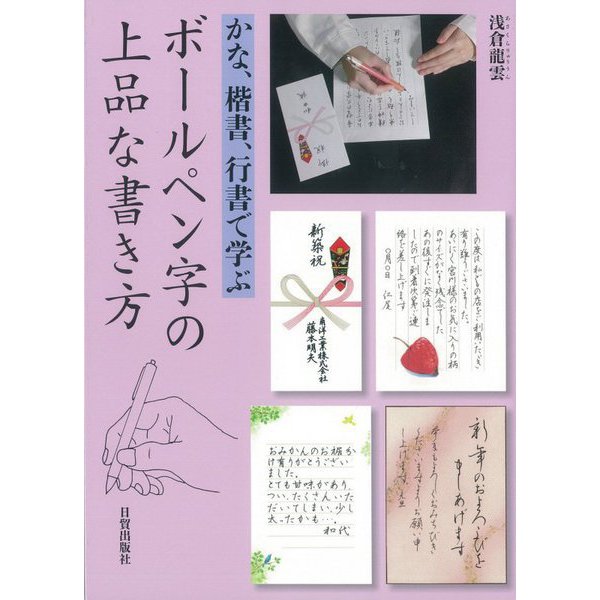 浅倉龍雲
あさくらりゅううん
かな、楷書、行書で学ぶ
ボールペン字の
上品な書き方
日貿出版社
新築祝
南洋工業株式会社
藤本明夫
この度は私どもの店をご利用いただき
有り難うございました。
あいにく宮川様のお気に入りの柄
のサイズがなく残念でした
あの後すぐに発注しま
したので到着次第ご連
絡を差し上げます
〇月〇日 仁尾
おみかんのお裾分
け有りがとうござい
ました。
とても甘味があり
つい、たくさんいた
だいてしまい、少し
太ったかも…。
和代
新年のおよろこびを
申しあげます
今年もよろしくおみちびき
くださいますようお願い申
し上げます